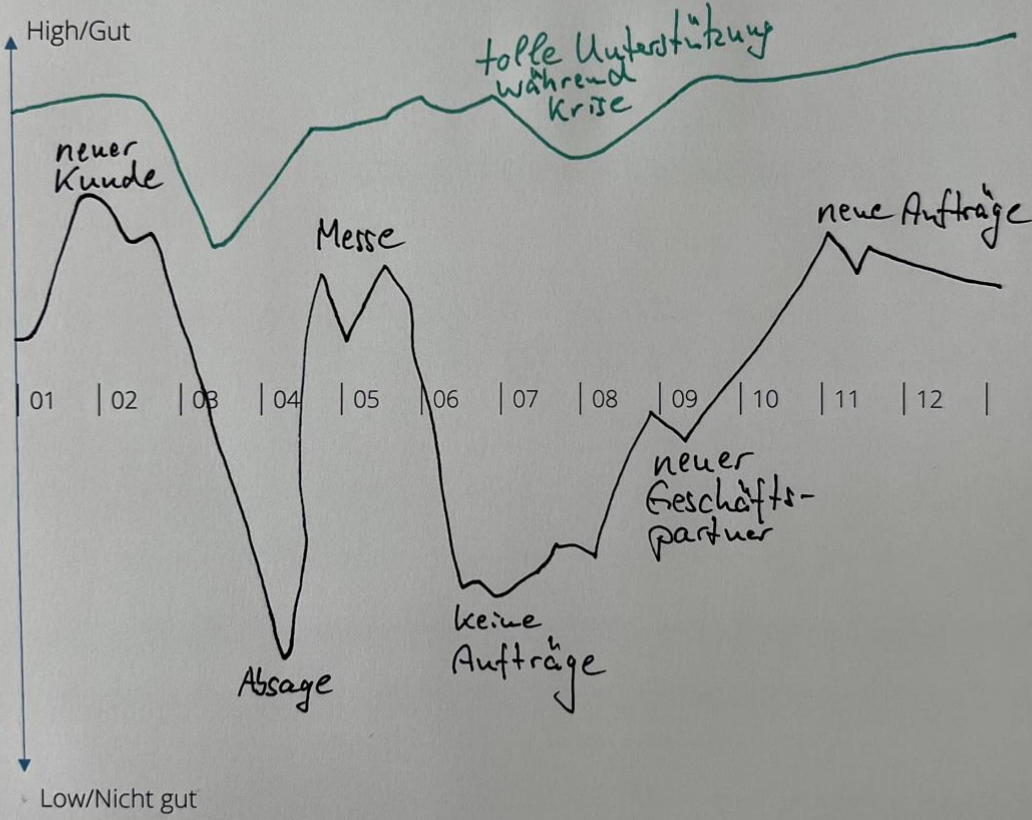 High/Gut
tolle Unterstützung
während
Krise
neuer
Kunde
Messe
neue Aufträge
01 02 03 04 05 06 07 08 09 10 11 12
neuer
Geschäfts-
partner
keine
Aufträge
Absage
Low/Nicht gut